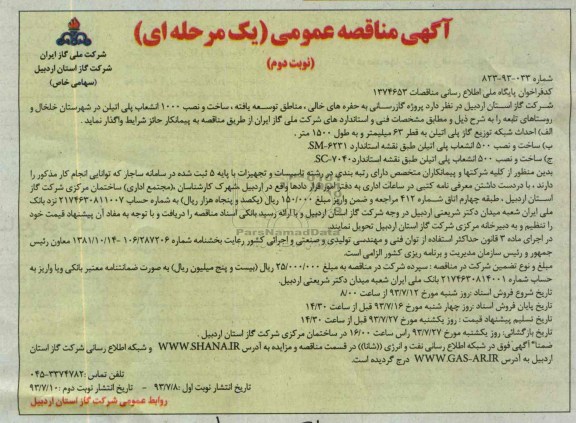 آگهی مناقصه عمومی (یک مرحله ای)
(نوبت دوم)
شرکت ملی گاز ایران
شرکت گاز استان اردبیل
(سهامی خاص)
شماره ۰۳۳-۹۳-۸۲۳
کدفراخوان پایگاه ملی اطلاع رسانی مناقصات ۱۳۷۴۶۵۳
شرکت گاز استان اردبیل در نظر دارد پروژه گازرسانی به حفره های خالی ، مناطق توسعه یافته ، ساخت و نصب ۱۰۰۰ انشعاب پلی اتیلن در شهرستان خلخال و
روستاهای تابعه را به شرح ذیل و مطابق مشخصات فنی و استاندارد های شرکت ملی گاز ایران از طریق مناقصه به پیمانکار حائز شرایط واگذار نماید .
الف) احداث شبکه توزیع گاز پلی اتیلن به قطر ۶۳ میلیمتر و به طول ۱۵۰۰ متر .
ب) ساخت و نصب ۵۰۰ انشعاب پلی اتیلن طبق نقشه استاندارد SM-۶۲۳۱
ج) ساخت و نصب ۵۰۰ انشعاب پلی اتیلن طبق نقشه استاندارد SC-۷۰۴۰
بدین منظور از کلیه شرکتها و پیمانکاران متخصص دارای رتبه بندی در رشته تاسیسات و تجهیزات با پایه ۵ ثبت شده در سامانه ساجار که توانایی انجام کار مذکور را
دارند ، با دردست داشتن معرفی نامه کتبی در ساعات اداری به دفتر امور قرار دادها واقع در اردبیل ،شهرک کارشناسان ،مجتمع اداری) ساختمان مرکزی شرکت گاز
استان اردبیل ، طبقه چهارم اتاق شماره ۴۱۲ مراجعه و ضمن واریز مبلغ ۱۵۰/۰۰۰ ریال (یکصد و پنجاه هزار ریال) به حساب شماره ۲۱۷۴۶۳۰۸۱۱۰۰۷ نزد بانک
ملی ایران شعبه میدان دکتر شریعتی اردبیل در وجه شرکت گاز استان اردبیل و با ارائه رسید بانکی اسناد مناقصه را دریافت و با توجه به مفاد آن پیشنهاد قیمت خود
را تنظیم و به دبیرخانه مرکزی شرکت گاز استان اردبیل تحویل نمایند.
در اجرای ماده ۳ قانون حداکثر استفاده از توان فنی و مهندسی تولیدی و صنعتی و اجرائی کشور رعایت بخشنامه شماره ۱۰۶/۲۸۷۲۰۶ -۱۳۸۱/۱۰/۱۴ معاون رئیس
جمهور و رئیس سازمان مدیریت و برنامه ریزی کشور الزامی است.
مبلغ و نوع تضمین شرکت در مناقصه : سپرده شرکت در مناقصه به مبلغ ۲۵/۰۰۰/۰۰۰ ریال (بیست و پنج میلیون ریال) به صورت ضمانتنامه معتبر بانکی ویا واریز به
حساب شماره ۲۱۷۴۶۳۰۸۱۴۰۰۱ بانک ملی ایران شعبه میدان دکتر شریعتی اردبیل.
تاریخ شروع فروش اسناد :روز شنبه مورخ ۹۳/۷/۱۲ از ساعت ۸/۰۰
تاریخ پایان فروش اسناد :روز چهار شنبه مورخ ۹۳/۷/۱۶ قبل از ساعت ۱۴/۳۰
تاریخ تسلیم پیشنهاد قیمت : روز یکشنبه مورخ ۹۳/۷/۲۷ قبل از ساعت ۱۴/۳۰
تاریخ بازگشائی: روز یکشنبه مورخ ۹۳/۷/۲۷ راس ساعت ۱۶/۰۰ در ساختمان مرکزی شرکت گاز استان اردبیل.
ضمنا" آگهی فوق در شبکه اطلاع رسانی نفت و انرژی ((شانا)) در قسمت مناقصه و مزایده به آدرس WWW.SHANA.IR و شبکه اطلاع رسانی شرکت گاز استان
اردبیل به آدرس WWW.GAS-AR.IR درج گردیده است.
تلفن تماس :۳۳۷۴۷۸۲-۰۴۵
تاریخ انتشار نوبت اول :۹۳/۷/۸ - تاریخ انتشار نوبت دوم :۹۳/۷/۱۰
روابط عمومی شرکت گاز استان اردبیل
ParsNamadData